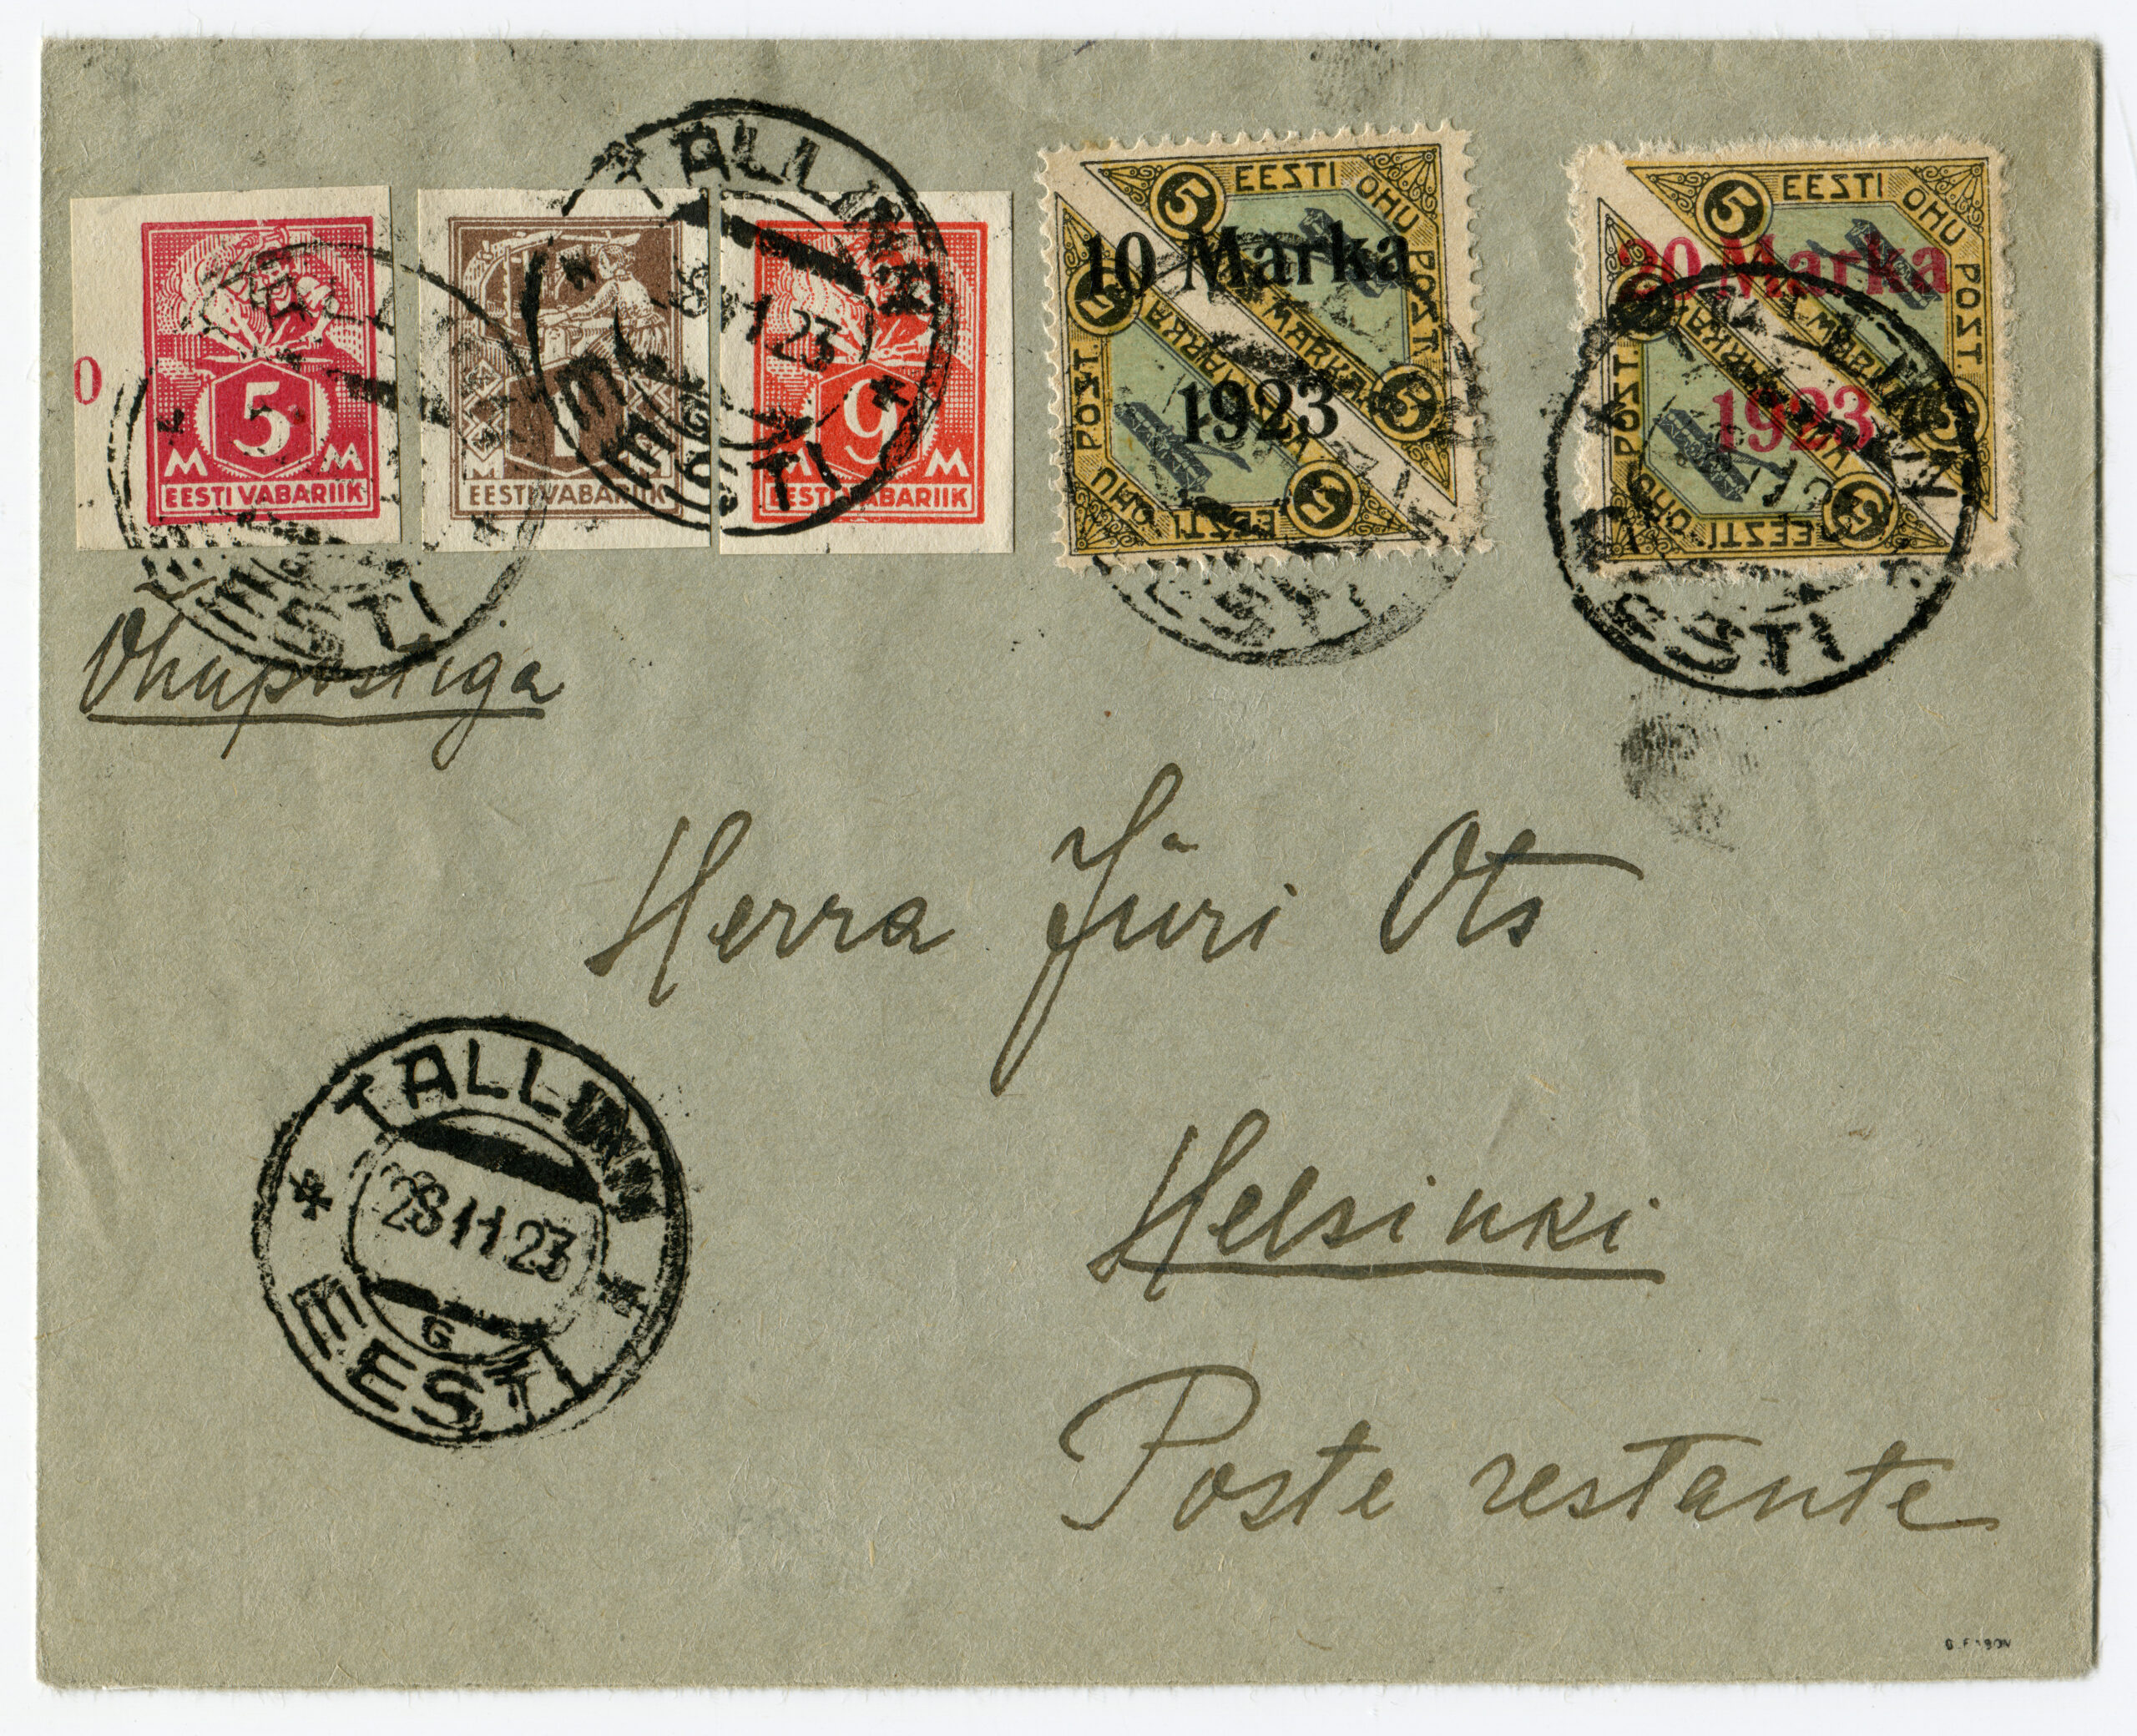 0
5
M M
EESTI VABARIIK
M
EESTI VABARIIK
9
M M
EESTI VABARIIK
TALLINN
11 23
EESTI
5 EESTI OHU POST.
5 MARKA
10 Marka
1923
5 EESTI OHU POST.
5 MARKA
5 EESTI OHU POST.
20 Marka
1923
5 EESTI OHU POST.
5 MARKA
EESTI
TALLINN
EESTI
EESTI
Ohupostiga
Herra Jüri Ots
TALLINN
28 11 23
G
EESTI
Helsinki
Poste restante